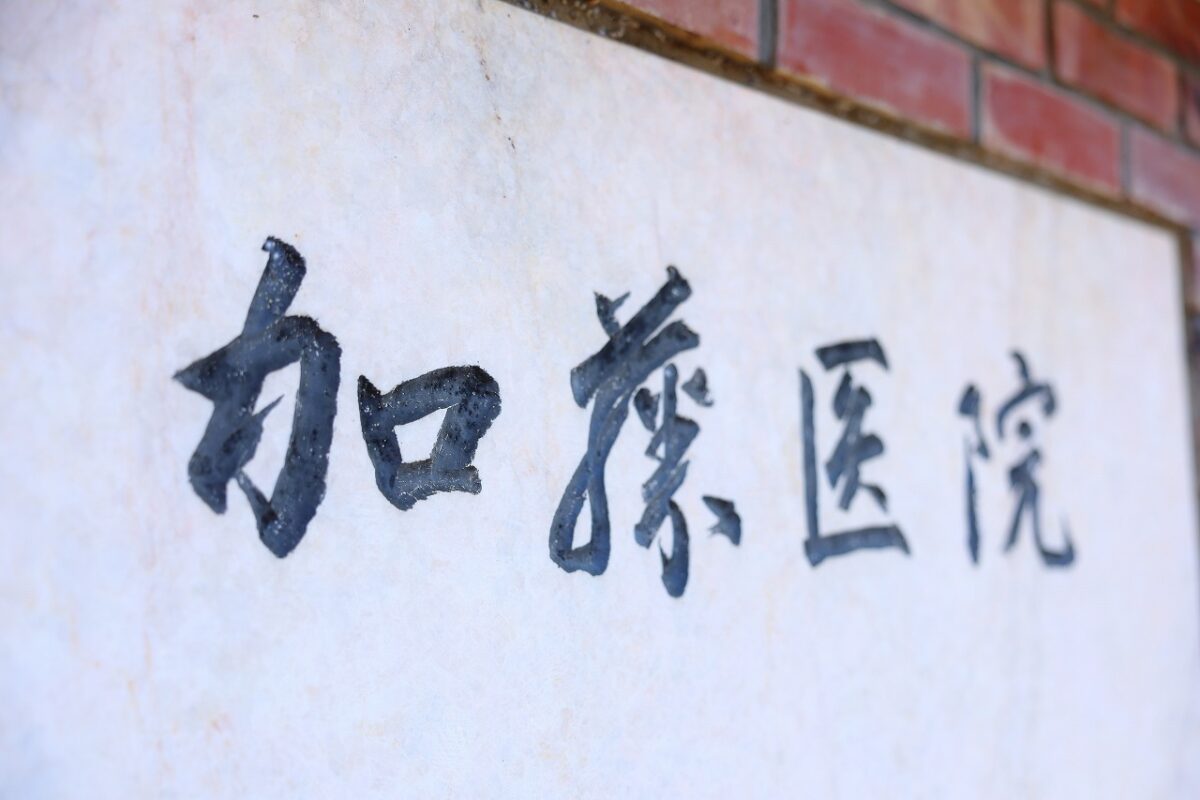 加藤医院